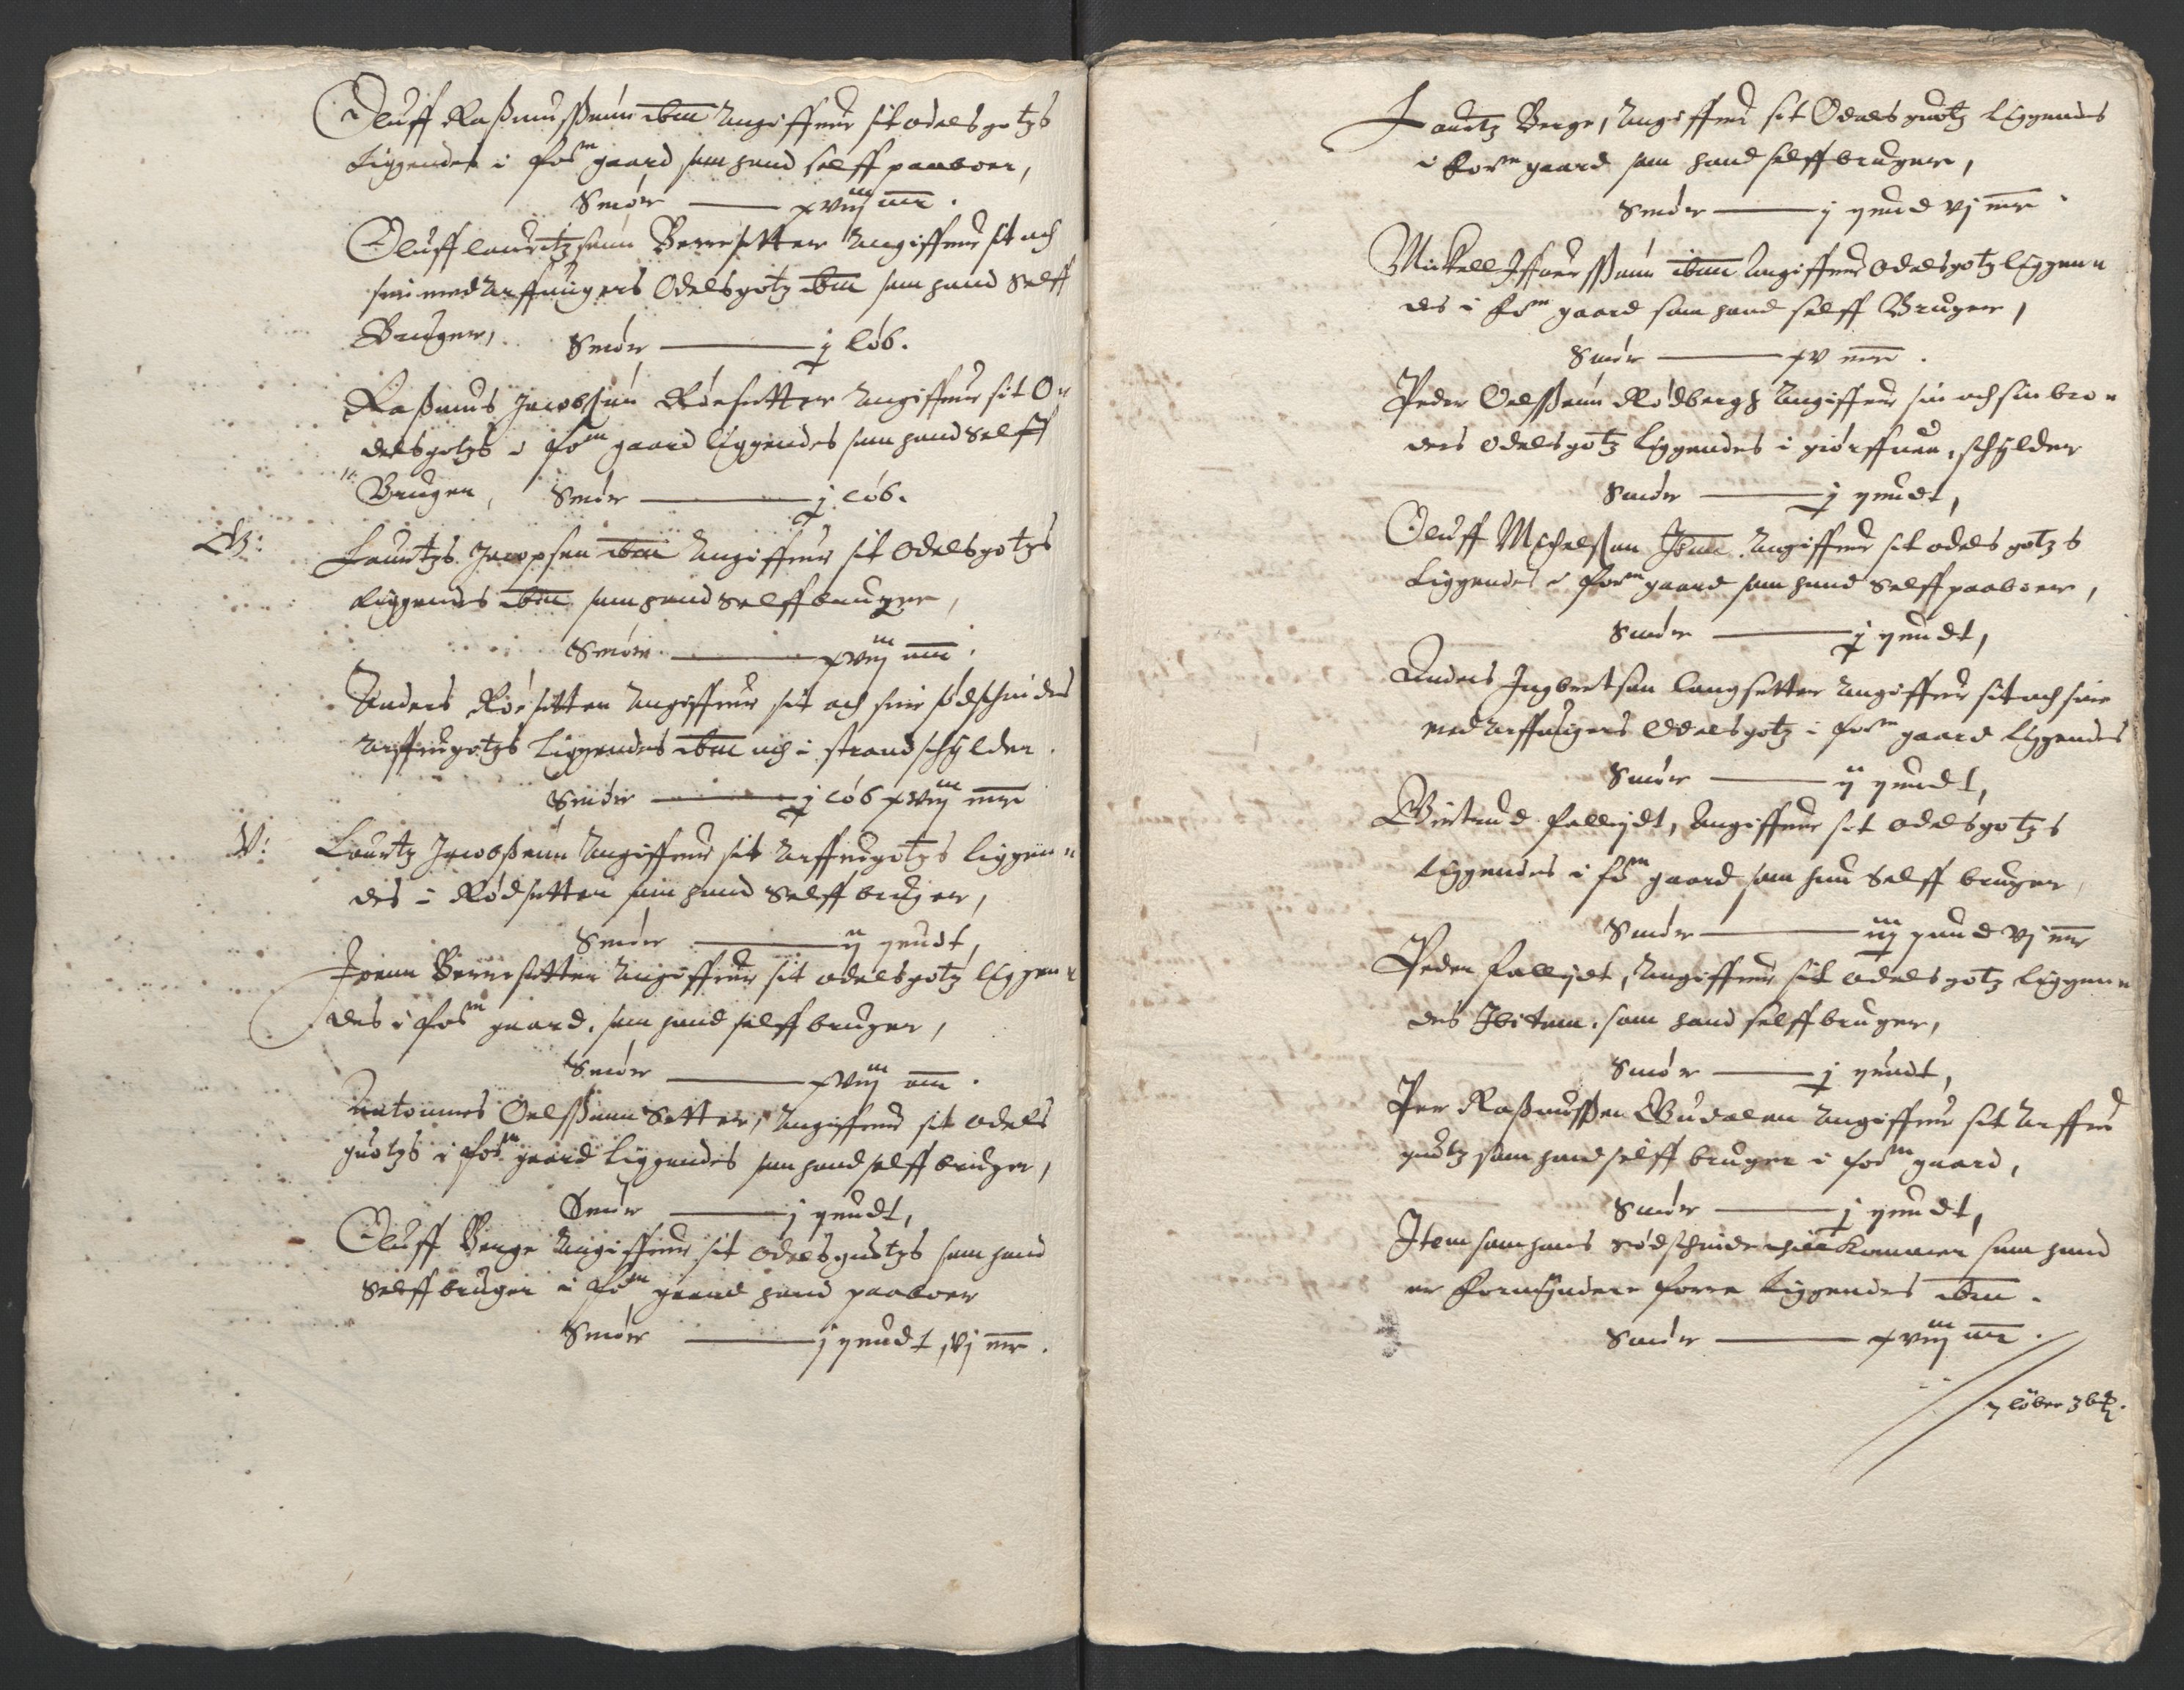 Oluff Raßmußenn ibm Angiffuer sit odels gotzs
Liggendes i forne gaard som hand selff paaboer,
Smør ——— xviij mrr.
Oluff lauritzsenn Berresetter Angiffuer sit och
sine med Arffuingers Odelsgotz ibm som hand Selff
Bruger, Smør ——— j løb.
Raßmus Jacobsenn Røesetter Angiffuer sit O-
delsgotzs i forne gaard liggendes som hand Selff
Bruger, Smør ——— j løb.
Lauritzs Jacopsen ibm Angiffuer sit Odelsgotzs
Liggendes ibm som hand Selff bruger,
Smør ——— xviij mrr.
Anders Røesetter Angiffuer sit och sine sødschindes
Arffuegotzs Liggendes ibm och i strandschylder.
Smør ——— j løb xviij mrr
V: Lauritz Jacobßenn Angiffuer sit Arffuegotzs liggen-
des i Rødsetter som hand Selff bruger,
Smør ——— ij pundt,
Joenn Berresetter Angiffuer sit odelsgotz liggen-
des i forne gaard, som hand selff bruger,
Smør ——— xviij mrr.
Antonnes Oelßenn Setter, Angiffuer sit odels
guotzs i forne gaard liggendes som hand selff bruger,
Smør ——— j pundt,
Oluff Berge Angiffuer sit odelsguotzs som hand
Selff bruger i forne gaard hand paaboer
Smør ——— j pundt, vj mrr.
Lauritz Berge, Angiffuer sit Odels guotz liggendes
i forne gaard som hand selff bruger,
Smør ——— j pund vj mrr.
Mickell Iffuerßenn ibm Angiffuer odelsgotz liggen-
des i forne gaard som hand selff Bruger,
Smør ——— xv mrr.
Peder Oelßenn Rødbergh Angiffuer sin och sin bro-
ders odelsgotz liggendes i schylder
Smør ——— j pundt,
Oluff Michelßen Ibm Angiffuer sit odels gotzs
Liggendes i forne gaard som hand Selff paaboer,
Smør ——— j pundt,
Anders Ingbretsen langsetter Angiffuer sit och sine
med arffuingers Odelsgotz i forne gaard liggendes
Smør ——— ij pundt,
fallejdt, Angiffuer sit odelsgotzs
Liggendes i forne gaard som hun Selff bruger,
Smør ——— iij pund vj mrr
Peder fallejdt, Angiffuer sit odels gotz liggen-
des Ibitem, som hand selff bruger,
Smør ——— j pundt,
Per Raßmußen Budalen Angiffuer sit Arffue
guotz som hand selff bruger i forne gaard,
Smør ——— j pundt,
Item som hans sødschinde som hand
er formyndere forre liggendes ibm.
Smør ——— xviij mrr.
7 løber